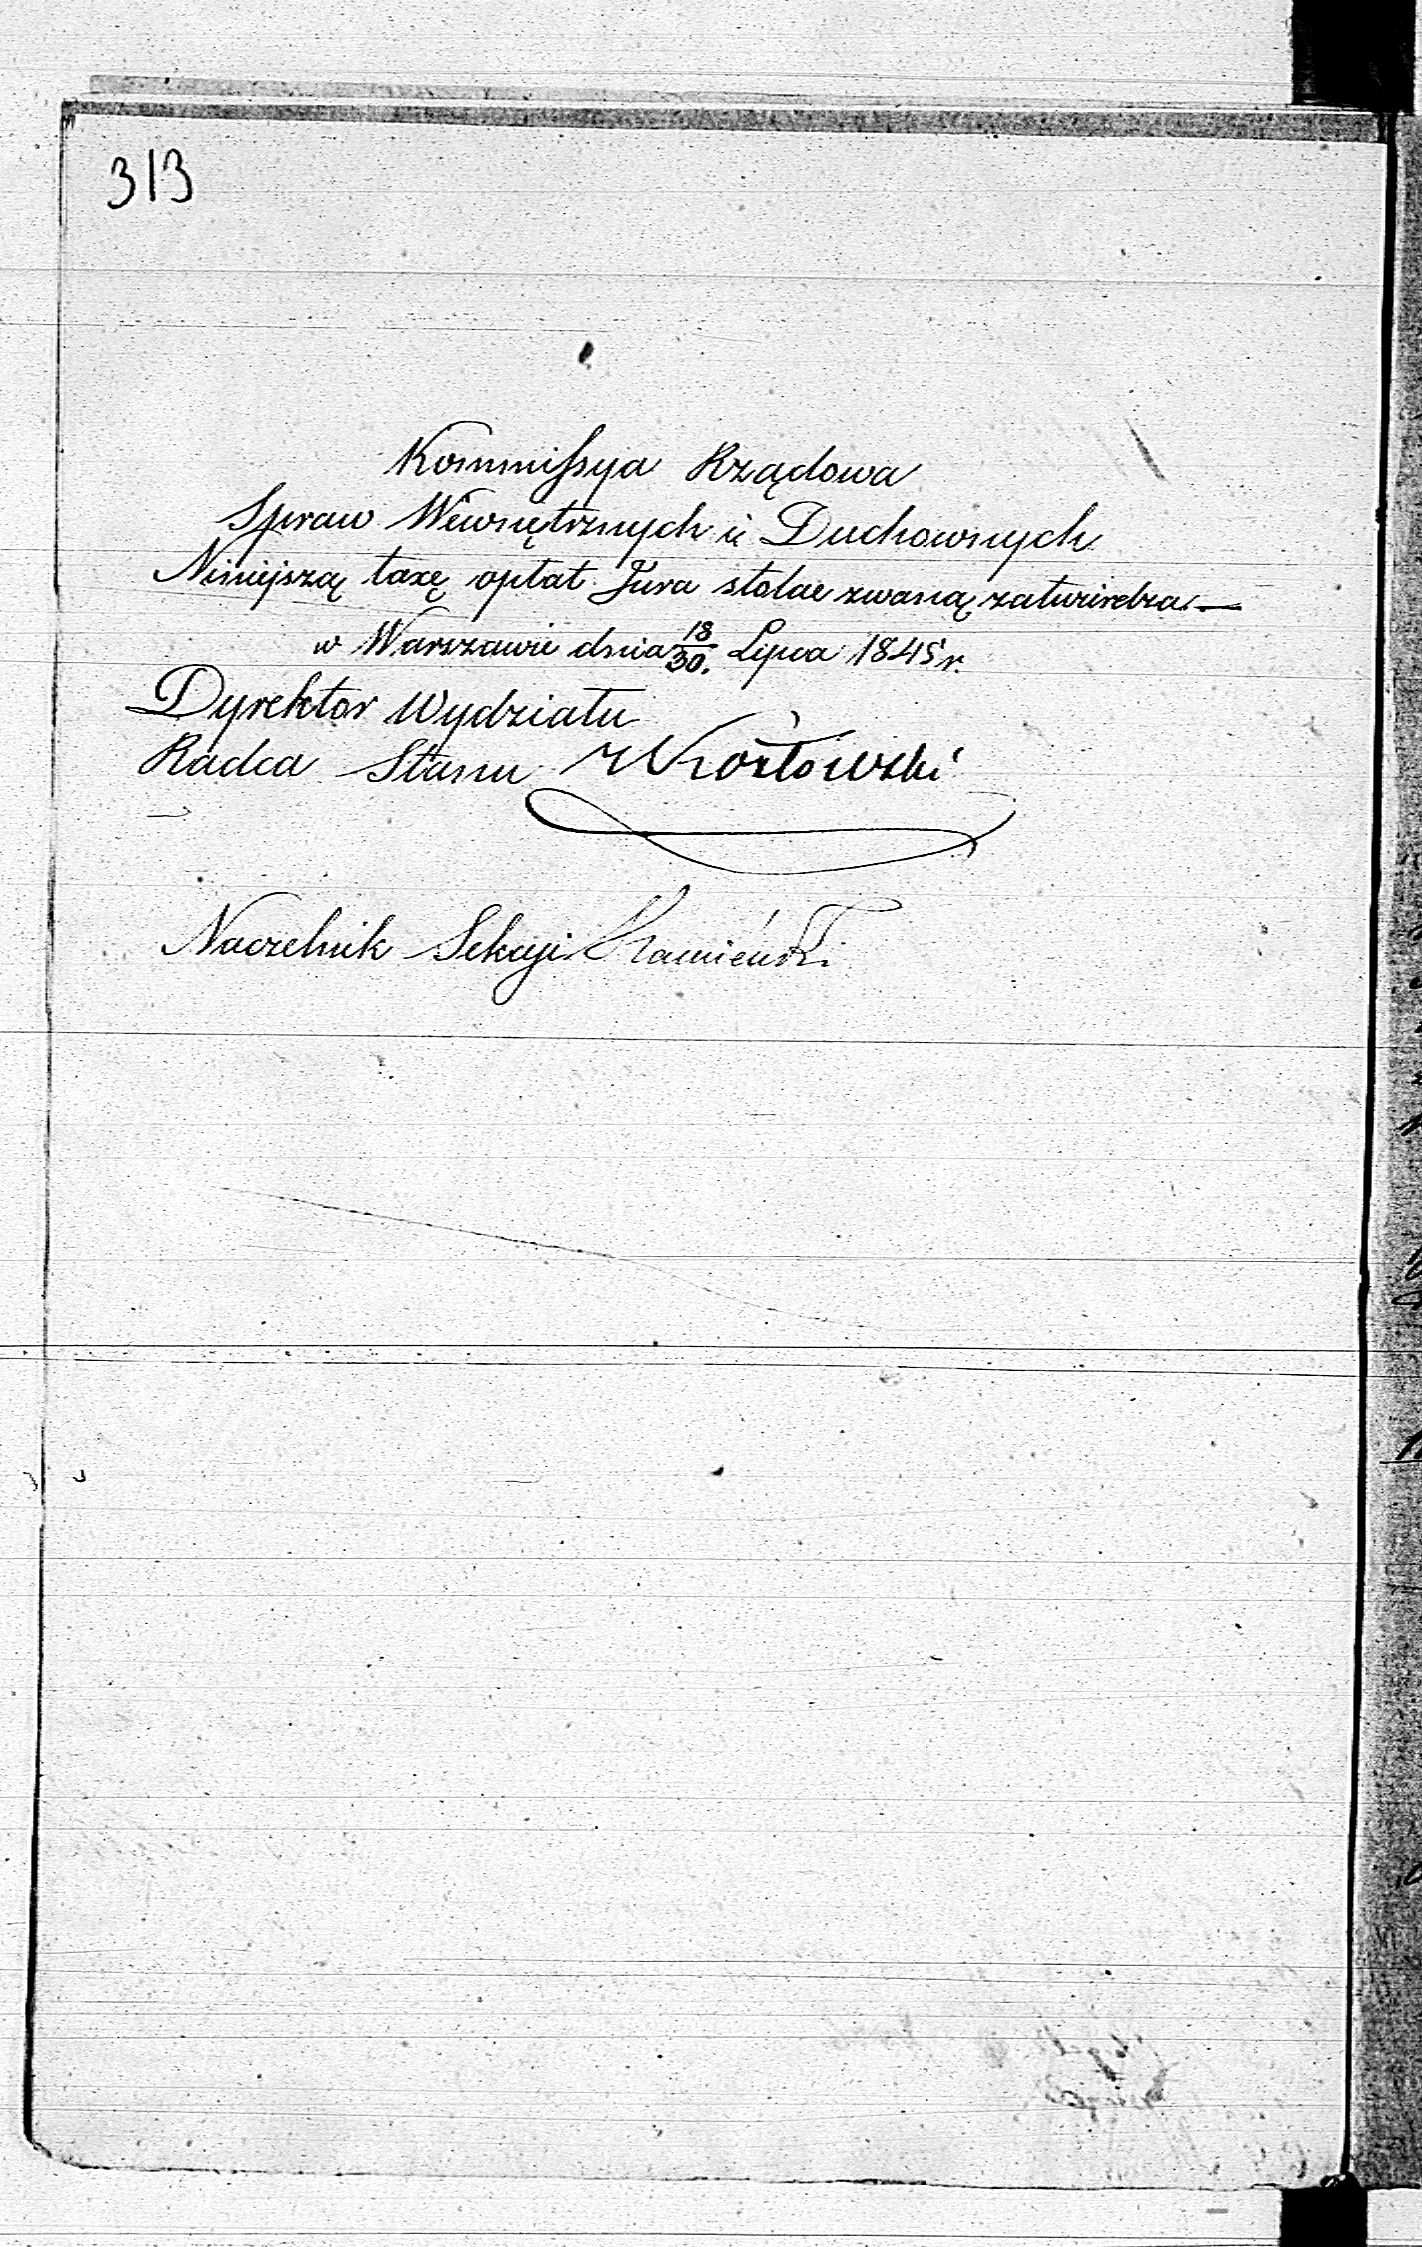 313
Kommissya Rządowa
Spraw Wewnętrznych i Duchownych
Niniejszą taxę opłat Jura stolae zwaną zatwierdza. —
w Warszawie dnia 18/30. Lipca 1845 r.
Dyrektor Wydziału
Radca Stanu Kozłowski
Naczelnik Sekcyi Kamieński